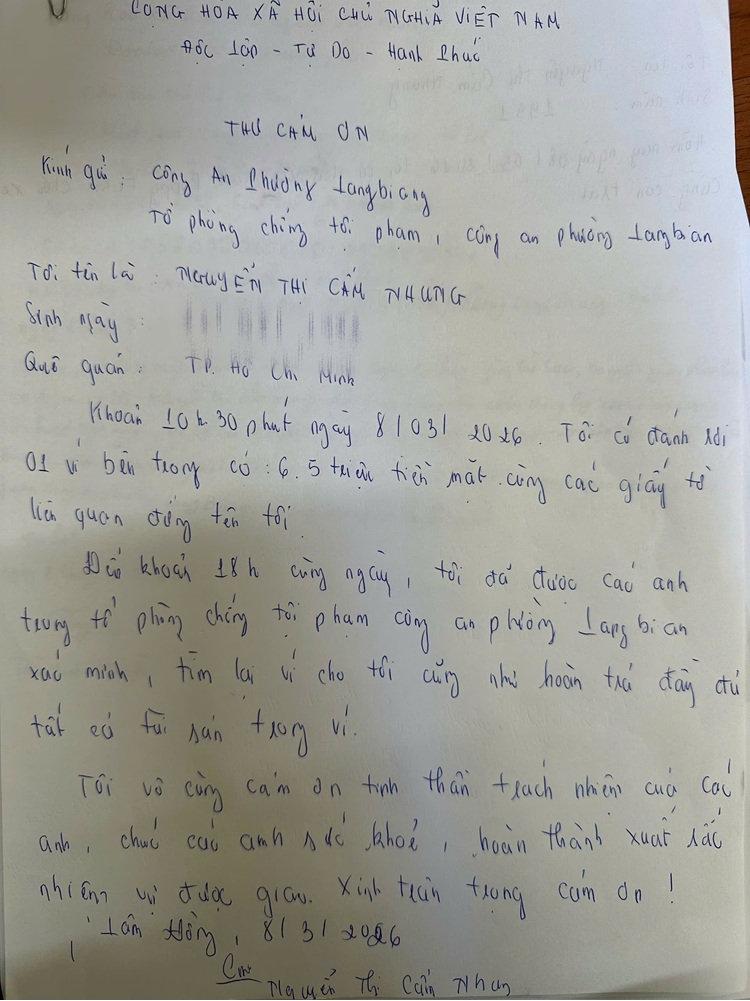 CỘNG HÒA XÃ HỘI CHỦ NGHĨA VIỆT NAM
Độc lập - Tự Do - Hạnh Phúc
THƯ CẢM ƠN
Kính gửi : Công An Phường Langbiang
Tổ phòng chống tội phạm, công an phường Langbian
Tôi tên là : NGUYỄN THỊ CẨM NHUNG
Sinh ngày :
Quê quán : TP. Hồ Chí Minh
Khoản 10h.30 phút ngày 8/03/2026. Tôi có đánh rơi
01 ví bên trong có : 6.5 triệu tiền mặt cùng các giấy tờ
liên quan đứng tên tôi.
Đến khoản 18h cùng ngày, tôi đã được các anh
trong tổ phòng chống tội phạm công an phường Langbian
xác minh, tìm lại ví cho tôi cũng như hoàn trả đầy đủ
tất cả tài sản trong ví.
Tôi vô cùng cảm ơn tinh thần trách nhiệm của các
anh, chúc các anh sức khoẻ, hoàn thành xuất sắc
nhiệm vụ được giao. Xinh trân trọng cảm ơn !
Lâm Đồng, 8/3/2026
Nguyễn Thị Cẩm Nhung